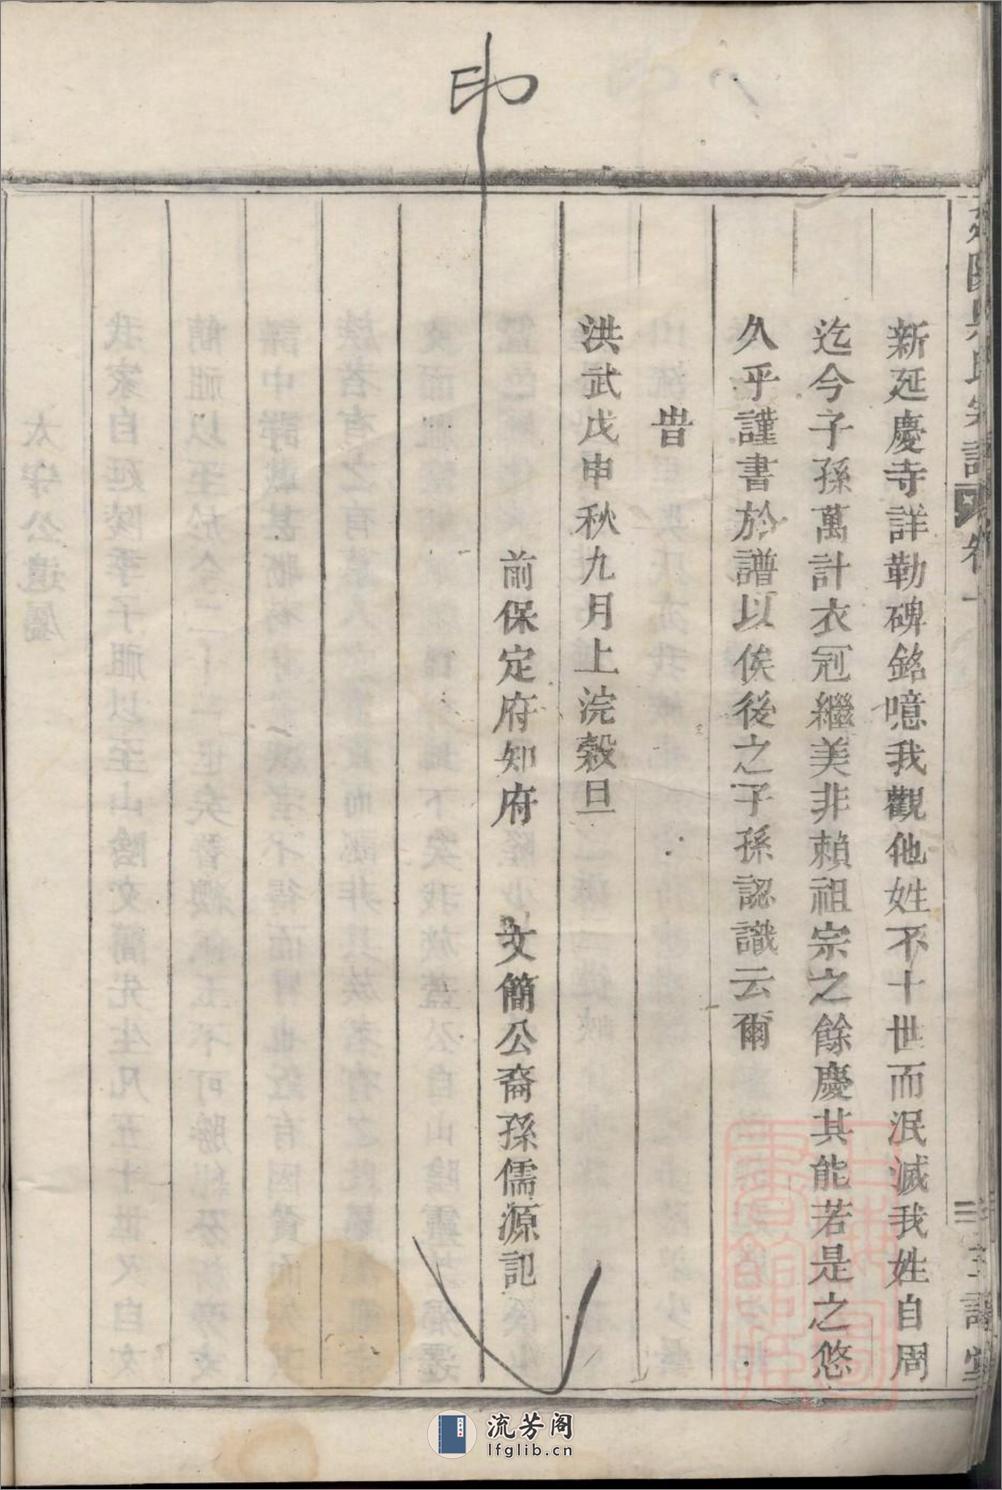 印
新延慶寺詳勒碑銘噫我觀他姓不十世而泯滅我姓自周
迄今子孫萬計衣冠繼美非賴祖宗之餘慶其能若是之悠
久乎謹書於譜以俟後之子孫認識云爾
旹
洪武戊申秋九月上浣穀旦
前保定府知府 文簡公裔孫儒源記
流芳阁
lfglib.cn